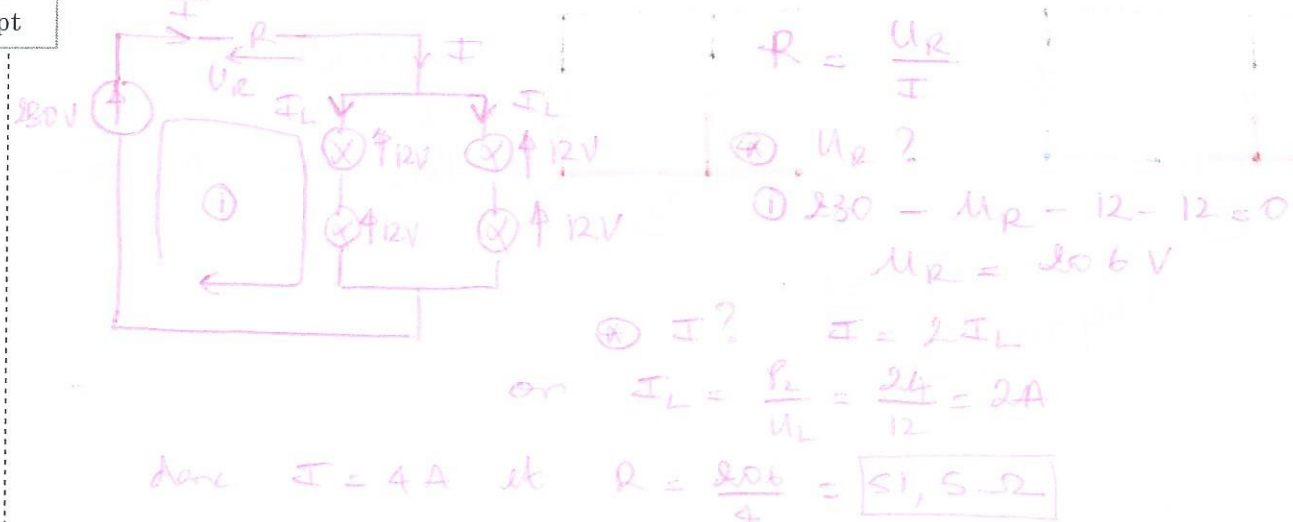 pt
I
R
I
U_R
230V
I_L
I_L
↑12V
↑12V
①
↑12V
↑12V
R = U_R / I
* U_R ?
① 230 - U_R - 12 - 12 = 0
U_R = 206 V
* I ? I = 2 I_L
or I_L = P_L / U_L = 24 / 12 = 2A
donc I = 4 A et R = 206 / 4 = 51,5 Ω